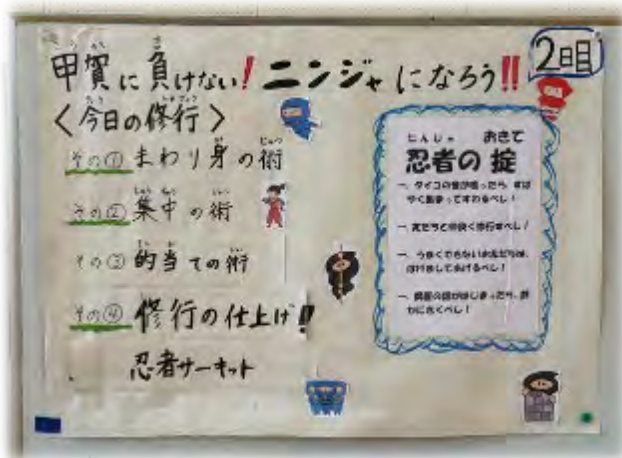 甲賀に負けない!ニンジャになろう!!
2日目
<今日の修行>
その① まわり身の術
その② 集中の術
その③ 的当ての術
その④ 修行の仕上げ!!
忍者サーキット
にんじゃ おきて
忍者の掟
一、タイコの音が鳴ったら、すば
やく集まってすわるべし!
一、友だちと仲良く修行すべし!
一、うまくできないお友だちは、
はげましてあげるべし!
一、先生の話がはじまったら、静
かにきくべし!